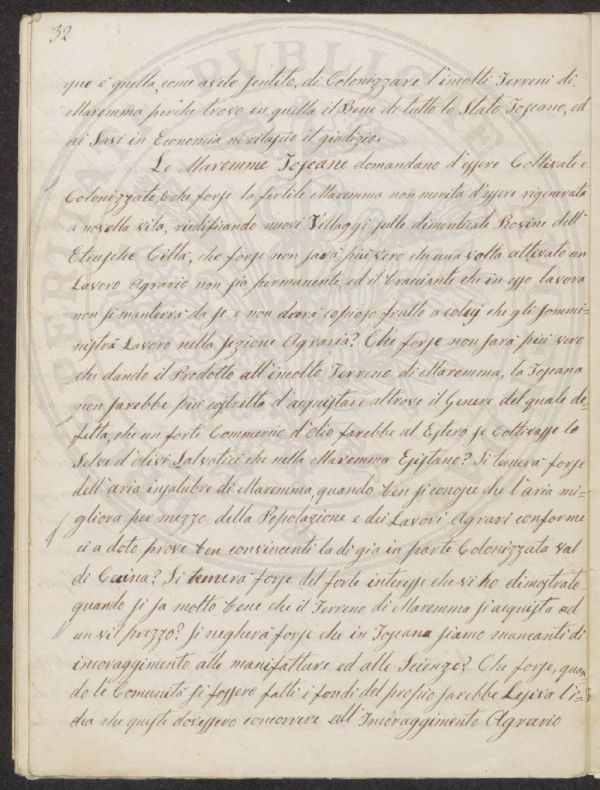 32
que è quella, come avete sentito, di Colonizzare l'incolti Terreni di
Maremma perchè trovo in quella il Bene di tutto lo Stato Toscano, ed
ai Savi in Economia ne rilascio il giudizio.
Le Maremme Toscane domandano d'essere Coltivate e
Colonizzate, che forse la fertile Maremma non merita d'essere rigenerata
a novella vita, riedificando nuovi Villaggi sulle dimenticate Rovine dell'
Etrusche Città, che forse non sarà più vero che una volta attivato un
Lavoro Agrario non sia permanente, ed il bracciante che in esso lavora
non si manterrà da se e non darà copioso frutto a colui che gli sommi=
nistrà Lavoro nella sezione Agraria? Che forse non sarà più vero
che dando il Prodotto all'incolto Terreno di Maremma, la Toscana
non sarebbe più costretta d'acquistare altrove il Genere del quale di=
fetta, che un forte Commercio d'olio farebbe al Estero se Coltivasse le
Selve d'olivi Salvatici che nella Maremma Esistano? Si temerà forse
dell'aria insalubre di Maremma, quando ben si conosce che l'aria mi=
gliora per mezzo della Popolazione e dei Lavori Agrari conforme
ci a doto prove ben convincenti la di già in parte Colonizzata val
di Cecina? Si temerà forse del forte interesse che vi ho dimostrato
quando si sa molto bene che il Terreno di Maremma si acquista ad
un vil prezzo? Si negherà forse che in Toscana siamo mancanti di
incoraggimento alle manifatture ed alle Scienze? Che forse, quan=
do le Comunità si fossero fatti i fondi del proprio sarebbe Lesiva l'i=
dea che queste dovessero concorrere all'Incoraggimento Agrario